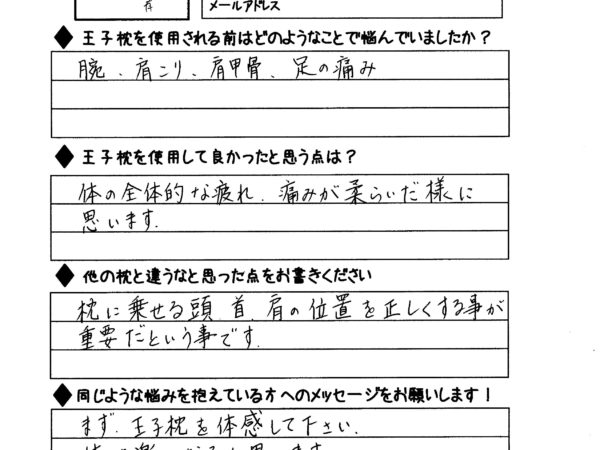 メールアドレス
◆王子枕を使用される前はどのようなことで悩んでいましたか？
腕、肩こり、肩甲骨、足の痛み
◆王子枕を使用して良かったと思う点は？
体の全体的な疲れ、痛みが柔らいだ様に
思います.
◆他の枕と違うなと思った点をお書きください
枕に乗せる頭、首、肩の位置を正しくする事が
重要だという事です.
◆同じような悩みを抱えている方へのメッセージをお願いします！
まず、王子枕を体感して下さい.